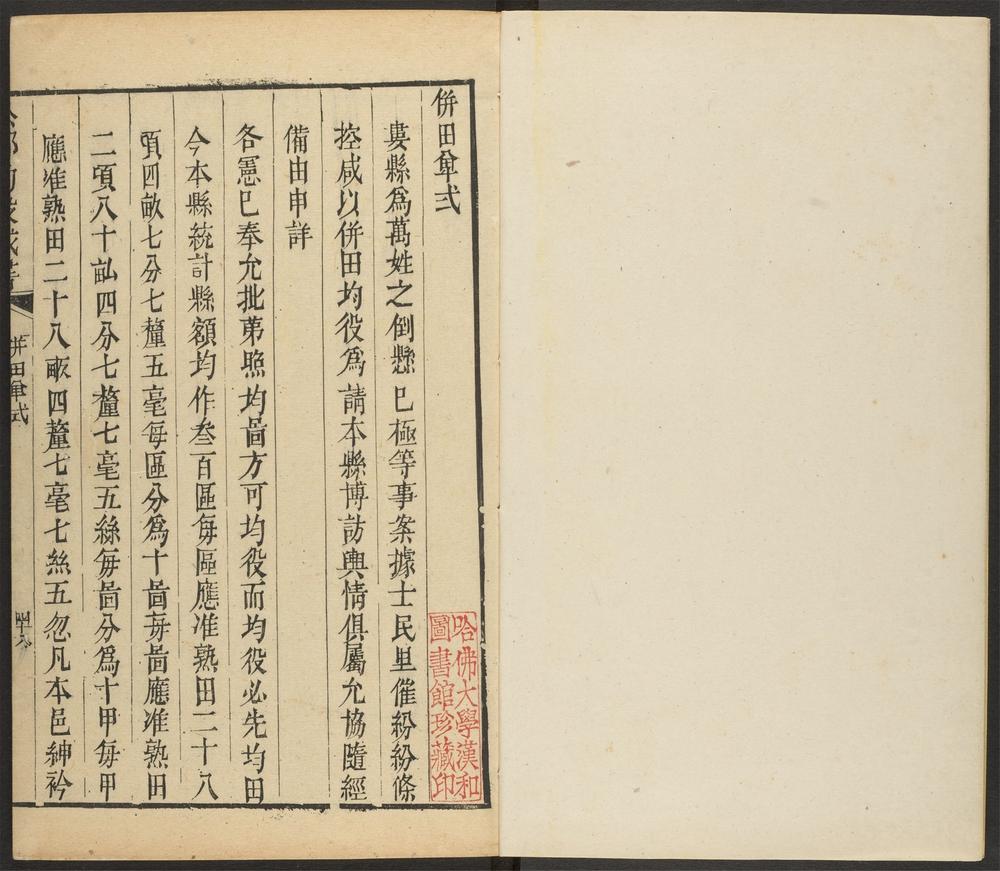 併田單式
婁縣爲萬姓之倒懸巳極等事案據士民里催紛紛條
控咸以併田均役爲請本縣博訪輿情俱屬允協隨經
備由申詳
各憲巳奉允批苐照均啚方可均役而均役必先均田
今本縣統計縣額均作叁百區毎區應准熟田二十八
頃四畝七分七釐五毫每區分爲十啚每啚應准熟田
二頃八十畝四分七釐七毫五絲每啚分爲十甲每甲
應准熟田二十八畝四釐七毫七絲五忽凡本邑紳衿
併田單式
哈佛大學漢和
圖書館珍藏印